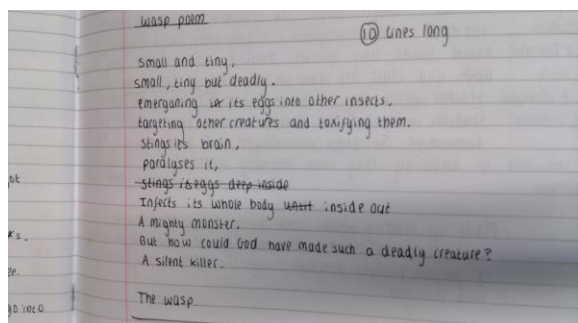 wasp poem
⑩ lines long
small and tiny,
small, tiny but deadly.
emerganing its eggs into other insects,
targeting other creatures and toxifying them.
stings its brain,
paralyses it,
stings its eggs deep inside
Infects its whole body inside out
A mighty monster.
But how could God have made such a deadly creature?
A silent killer.
The wasp.
ks.
ze.
go into